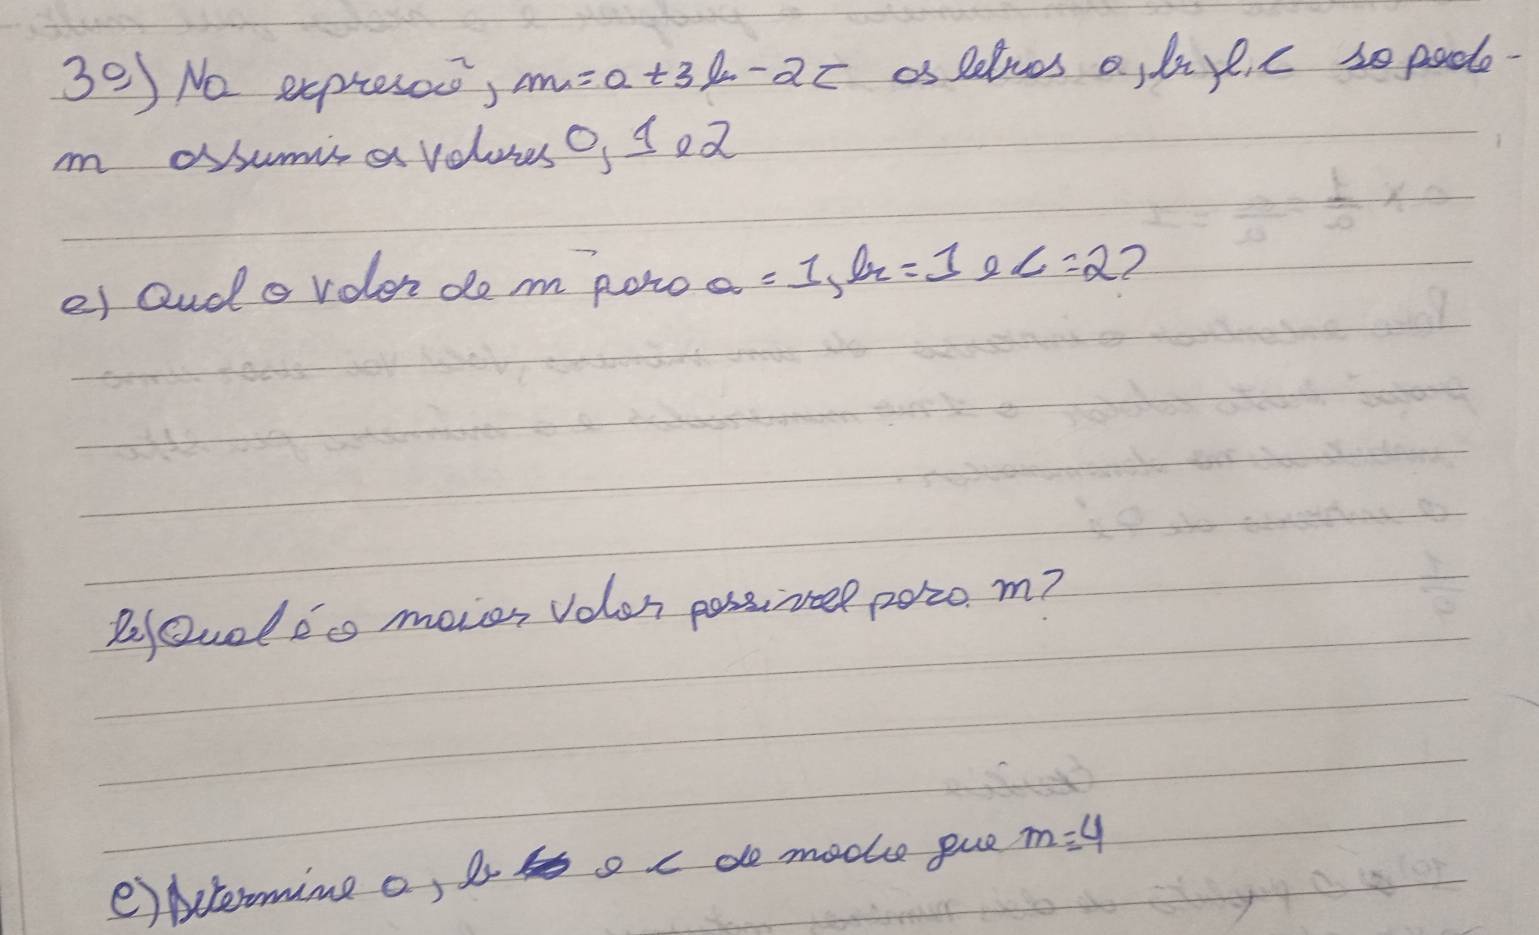 3º) Na expresoão, m=a+3b-2c as letras a, b, e, c so pode-
m assumir os valores 0, 1 e 2
a) Qual o valor de m para a = 1, b = 1 e c = 2?
b) Qual é o maior valor possivel para m?
c) Determine a, b e c de modo que m=4